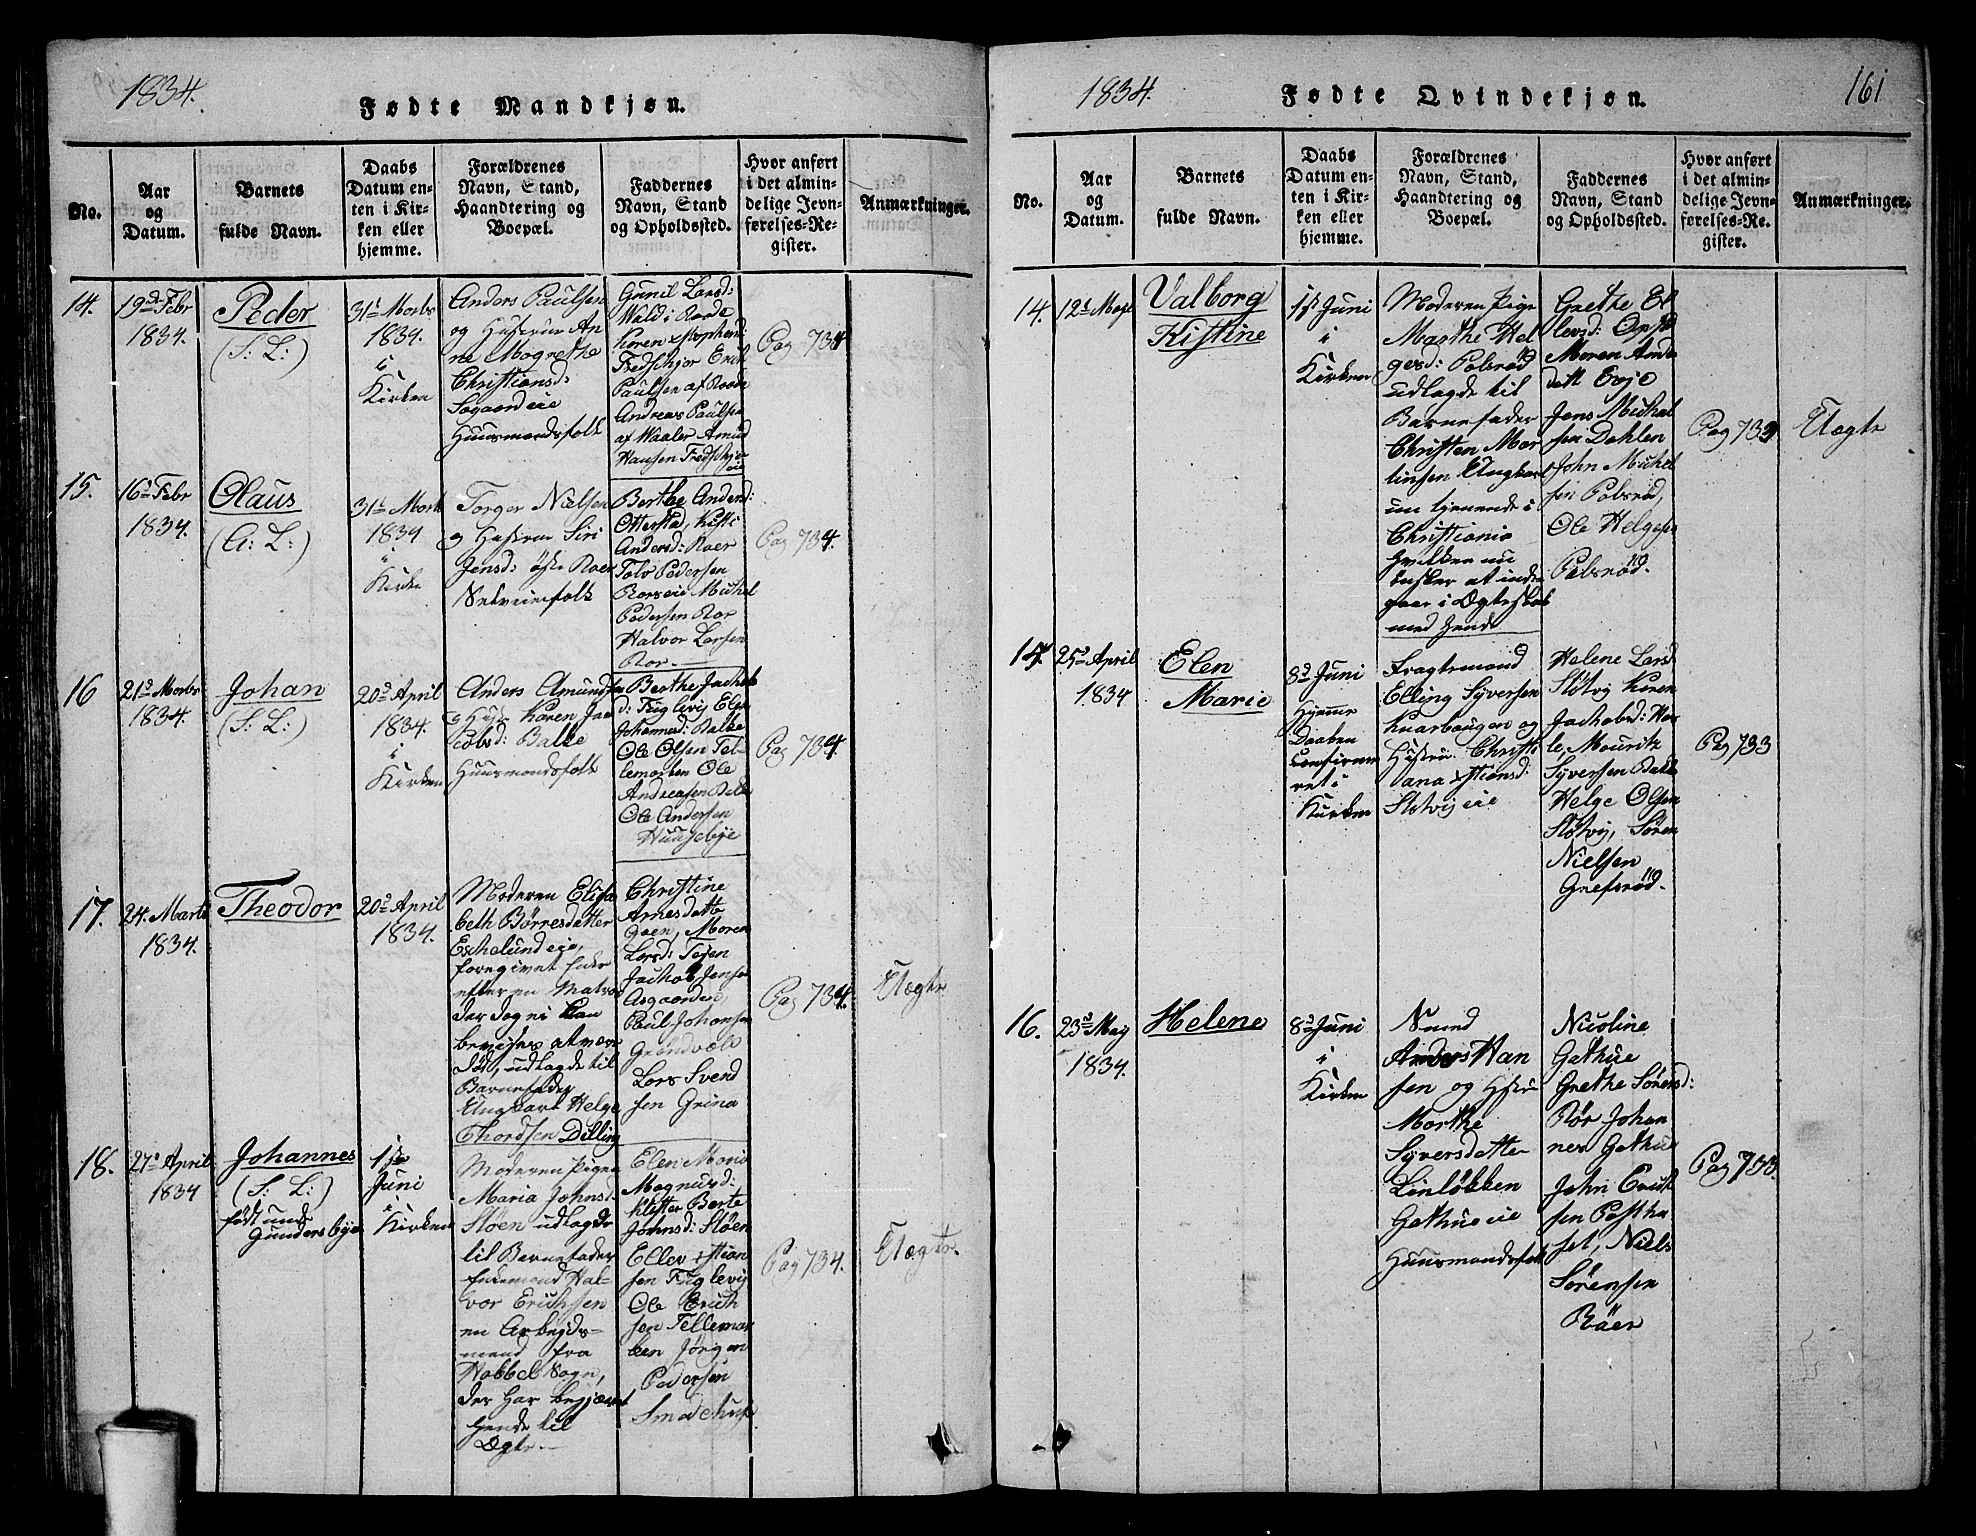 1834.
Fødte Mandkjøn.
No.
Aar
og
Datum.
Barnets
fulde Navn.
Daabs
Datum en-
ten i Kir-
ken eller
hjemme.
Forældrenes
Navn, Stand,
Haandtering og
Boepæl.
Faddernes
Navn, Stand
og Opholdssted.
Hvor anført
i det almin-
delige Jevn-
førelses-Re-
gister.
Anmærkninger.
14.
19de Febr
1834.
Peder
(S: L:)
31t Marts
1834.
i
Kirken
Anders Paulsen
og Hustrue An
ne Magrethe
Christiansd:
Huusmandsfolk
Gunil Larsd:
Paulsen af
Andreas Paulsen
af Waaler Amund
Hansen
Pag 734
15.
16 Febr
1834.
Olaus
(A: L:)
31t Mart
1834
i
Kirke
Torger Nielsen
og Hustrue Siri
Jensd: østre Roer
Selveierfolk
Berthe Anders:
Otterstad, Kisti
Andersd: Roer
Pedersen
Michel
Pedersen Roer
Halvor Larsen
Roer
Pag 734.
16
21 Marts
1834.
Johan
(S: L:)
20 April
1834.
i
Kirken
Anders Amundsen
og Hust Karen Ja
cobsd: Balke
Huusmandsfolk
Berthe Jachob
d: Fuglevig Elen
Johannesd: Balke
Ole Olsen Tel
lemarken Ole
Andreasen Balke
Ole Andersen
Huusebye
Pag 734
17.
24. Marts
1834.
Theodor
20 April
1834.
Moderen Elisa
beth Børresdatter
Eschelund eie,
foregivet Enke
efter en Matros
der dog ei kan
bevises at være
død, udlagde til
Barnefader
Ungkarl Helge
Thordsen Dilling
Christine
Arnesdatter
Maren
Larsd: Tejen
Jachob Jensen
Paul Johansen
Lars Svend
sen Grina
Pag 734.
Uægte
18.
27 April
1834
Johannes
(S: L:)
født under
Gundersbye
1ste
Juni
i
Kirken
Moderen Pigen
Maria Johnsd:
Støen udlagde
til Barnefader
Enkemand Hal-
vor Erichsen
en Arbejds-
mand fra
Habbel Sogn,
der har begjæret
hende til
Ægte.
Elen Maria
Magnusd:
Klister Berte
Johnsd: Støen
Ellev Xstian
sen Fuglevig
Ole Erich
sen Tellemar
ken Jørgen
Pedersen
Pag 734.
Uægte.
1834.
Fødte Qvindekjøn.
161
No.
Aar
og
Datum.
Barnets
fulde Navn.
Daabs
Datum en-
ten i Kir-
ken eller
hjemme.
Forældrenes
Navn, Stand,
Haandtering og
Boepæl.
Faddernes
Navn, Stand
og Opholdssted.
Hvor anført
i det almin-
delige Jevn-
førelses-Re-
gister.
Anmærkninger.
14.
12t Maje
Valborg
Kistine
1st Juni
i
Kirken
Moderen Pige
Marthe Hel
gesd: Pabsrød
udlagde til
Barnefader
Christen Mar
tinsen Ungkarl
nu tjenende i
Christiania
hvilken nu
ønsker at ind
gaae i Ægteskab
med hende
Grethe El
levsd:
Maren Ande
datt Evje
Jens Michel
sen Dahlen
John Michel
sen Pabsrød,
Ole Helgesen
Pabsrød.
Pag 733
Uægte
15.
25 April
1834
Elen
Marie
8 Juni
Hjemme
Daaben
confirme
ret i
Kirken
Fragtemand
Elling Syversen
Knarbaugen og
Hustru Christi
ana Xstiansd:
Støtvig eie
Helene Larsd
Støtvig Karen
Jachobsd:
Mouritz
Syversen Balke
Helge Olsen
Støtvig, Søren
Nielsen
Grefsrød.
Pag 733
16.
23 May
1834.
Helene
8 Juni
i
Kirken
Smed
Anders Han
sen og Hustru
Marthe
Syversdatter
Linløkken
Gathue eie
Huusmandsfolk
Nicoline
Gathue
Grethe Sørensd:
Rør Johan
nes Gathue
John Erich
sen
Niels
Sørensen
Röer
Pag 733.